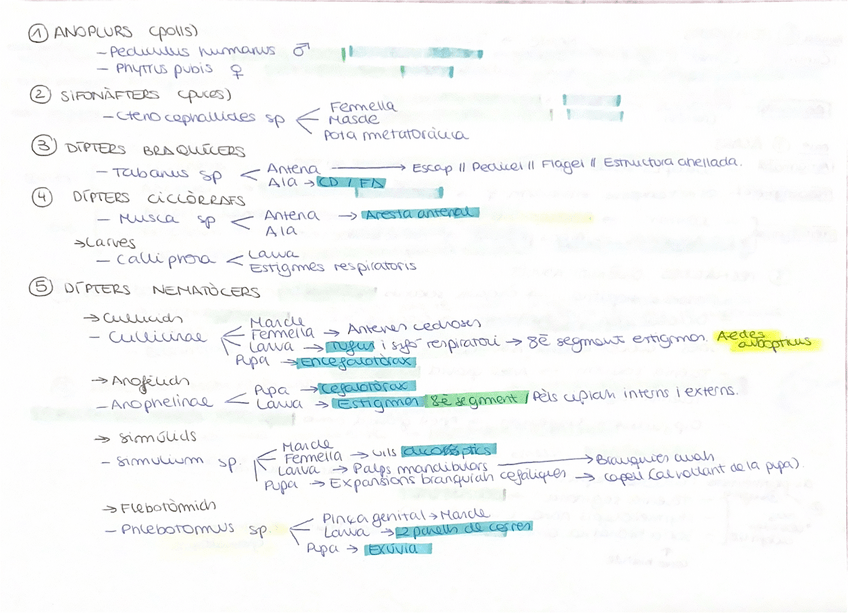 ① ANOPLURS (polls)
– Pediculus humanus ♂
– Phytrus pubis ♀
② SIFONÀFTERS (puces)
– Ctenocephalides sp Femella
Mascle
Pota metatoràcica
③ DÍPTERS BRAQUÍCERS
– Tabanus sp Antena → Escap // Pedicel // Flagel // Estructura anellada.
Ala → CD / FA
④ DÍPTERS CICLÒRRAFS
– Musca sp Antena → Aresta antenal
Ala
→ Larves
– Calliphora Larva
Estigmes respiratoris
⑤ DÍPTERS NEMATÒCERS
→ Culícids
– Culicinae Mascle
Femella → Antenes
Larva → i sifó respiratori → 8è segment estigmes. Aedes
Pupa → Encefalotòrax albopictus
→ Anofelich
– Anophelinae Pupa → Cefalotòrax
Larva → Estigmes 8è segment / Pèls interns i externs.
→ Simúlids
– Simulium sp. Mascle
Femella → ulls dicoòptics
Larva → Palps mandibulars → Branquies anals
Pupa → Expansions branquials cefàliques → capell (al voltant de la pupa).
→ Flebotòmich
– Phlebotomus sp Pinça genital → Mascle
Larva → 2 parells de cerres
Pupa → Exuvia